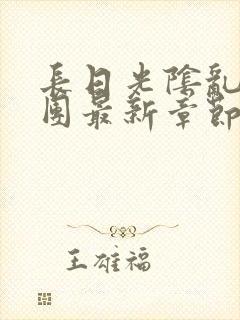 長日光陰亂
團最新章節
王雄福